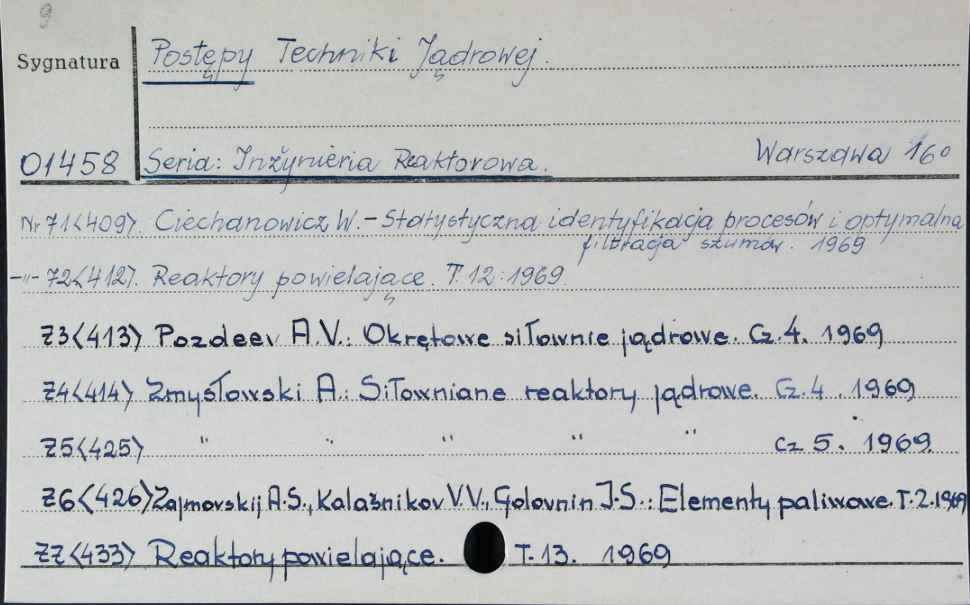 9
Sygnatura Postępy Techniki Jądrowej.
01458 Seria: Inżynieria Reaktorowa. Warszawa 16°
Nr 71<409>. Ciechanowicz W. - Statystyczna identyfikacja procesów i optymalna
filtracja szumów. 1969
-"- 72<412>. Reaktory powielające. T. 12. 1969.
73<413> Pozdeev A.V.: Okrętowe siłownie jądrowe. Cz. 4. 1969
74<414> Zmysłowski A.: Siłowniane reaktory jądrowe. Cz. 4. 1969
75<425> " " " " " cz 5. 1969.
76<426> Zajmovskij A.S., Kalašnikov V.V., Golovnin I.S.: Elementy paliwowe. T. 2. 1969
77<433> Reaktory powielające. T. 13. 1969